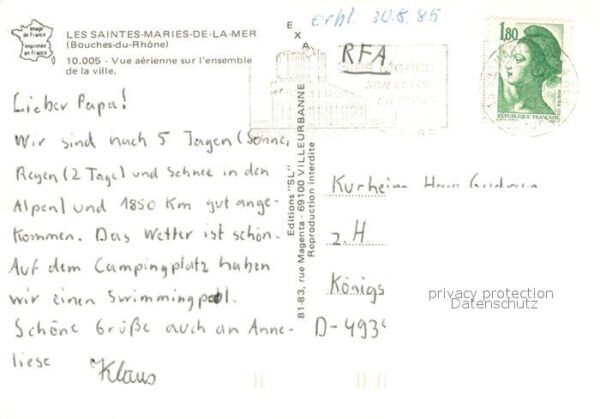 Image de France
Imprimée en France
LES SAINTES-MARIES-DE-LA-MER
(Bouches-du-Rhône)
10.005 - Vue aérienne sur l'ensemble
de la ville.
EXA
Erhl. 30.5.85
RFA
1,80
Lieber Papa!
Wir sind nach 5 Tagen (Sonne,
Regen (2 Tage) und Schnee in den
Alpen) und 1850 Km gut ange-
kommen. Das Wetter ist schön.
Auf dem Campingplatz haben
wir einen Swimmingpool.
Schöne Grüße auch an Anne-
liese
Klaus
Editions "SL"
81-83, rue Magenta - 69100 VILLEURBANNE
Reproduction interdite
Kurheim Haus Gudrun
z.H
Königs
D-493
privacy protection
Datenschutz